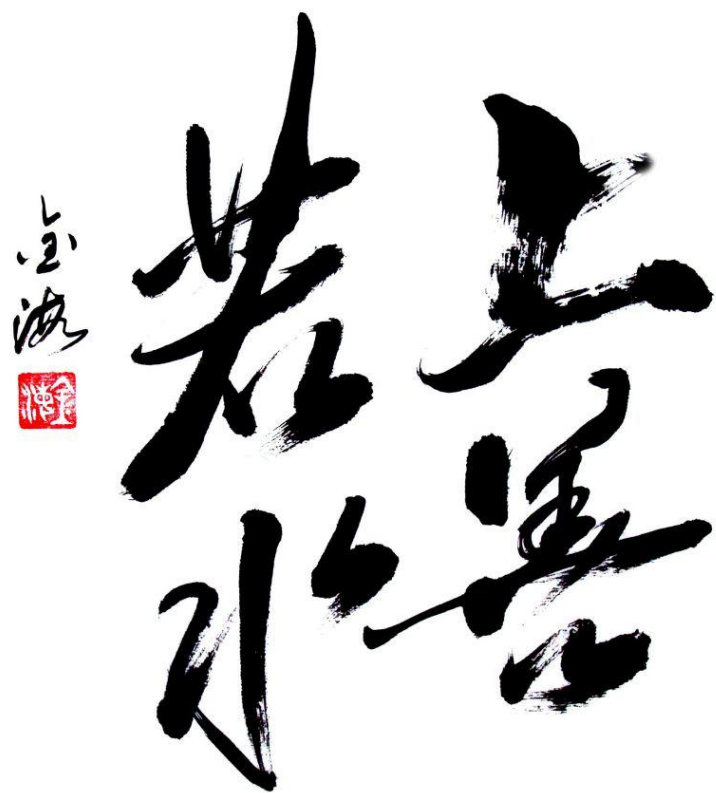 上善
若水
金海
金海